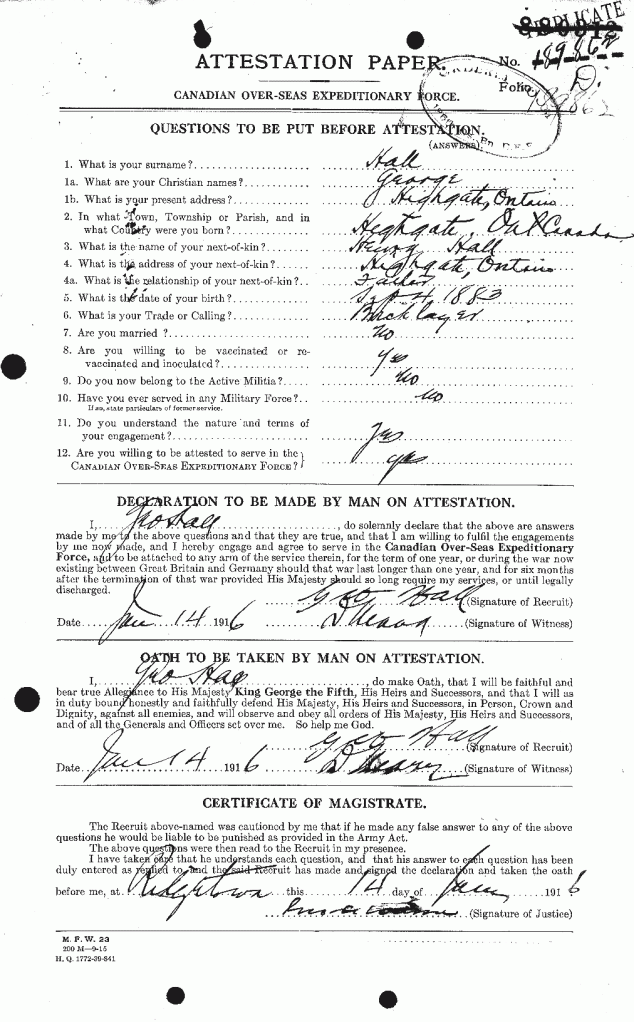 DUPLICATE
ATTESTATION PAPER.
No. 189862
D.
Folio.
CANADIAN OVER-SEAS EXPEDITIONARY FORCE.
QUESTIONS TO BE PUT BEFORE ATTESTATION.
(ANSWERS)
1. What is your surname? Hall
1a. What are your Christian names? George
1b. What is your present address? Highgate, Ontario
2. In what Town, Township or Parish, and in
what Country were you born? Highgate, Ont Canada
3. What is the name of your next-of-kin? Henry Hall
4. What is the address of your next-of-kin? Highgate, Ontario
4a. What is the relationship of your next-of-kin? Father
5. What is the date of your birth? Sept 4, 1883
6. What is your Trade or Calling? Bricklayer
7. Are you married? No
8. Are you willing to be vaccinated or re-
vaccinated and inoculated? Yes
9. Do you now belong to the Active Militia? No
10. Have you ever served in any Military Force? No
If so, state particulars of former service.
11. Do you understand the nature and terms of
your engagement? Yes
12. Are you willing to be attested to serve in the
CANADIAN OVER-SEAS EXPEDITIONARY FORCE? Yes
DECLARATION TO BE MADE BY MAN ON ATTESTATION.
I, Geo Hall, do solemnly declare that the above are answers
made by me to the above questions and that they are true, and that I am willing to fulfil the engagements
by me now made, and I hereby engage and agree to serve in the Canadian Over-Seas Expeditionary
Force, and to be attached to any arm of the service therein, for the term of one year, or during the war now
existing between Great Britain and Germany should that war last longer than one year, and for six months
after the termination of that war provided His Majesty should so long require my services, or until legally
discharged.
Geo Hall (Signature of Recruit)
Date Jan 14 1916 (Signature of Witness)
OATH TO BE TAKEN BY MAN ON ATTESTATION.
I, Geo Hall, do make Oath, that I will be faithful and
bear true Allegiance to His Majesty King George the Fifth, His Heirs and Successors, and that I will as
in duty bound honestly and faithfully defend His Majesty, His Heirs and Successors, in Person, Crown and
Dignity, against all enemies, and will observe and obey all orders of His Majesty, His Heirs and Successors,
and of all the Generals and Officers set over me. So help me God.
Geo Hall (Signature of Recruit)
Date Jan 14 1916 (Signature of Witness)
CERTIFICATE OF MAGISTRATE.
The Recruit above-named was cautioned by me that if he made any false answer to any of the above
questions he would be liable to be punished as provided in the Army Act.
The above questions were then read to the Recruit in my presence.
I have taken care that he understands each question, and that his answer to each question has been
duly entered as replied to, and the said Recruit has made and signed the declaration and taken the oath
before me, at Ridgetown this 14 day of Jan 1916
(Signature of Justice)
M. F. W. 23
200 M—9-15
H. Q. 1772-39-841